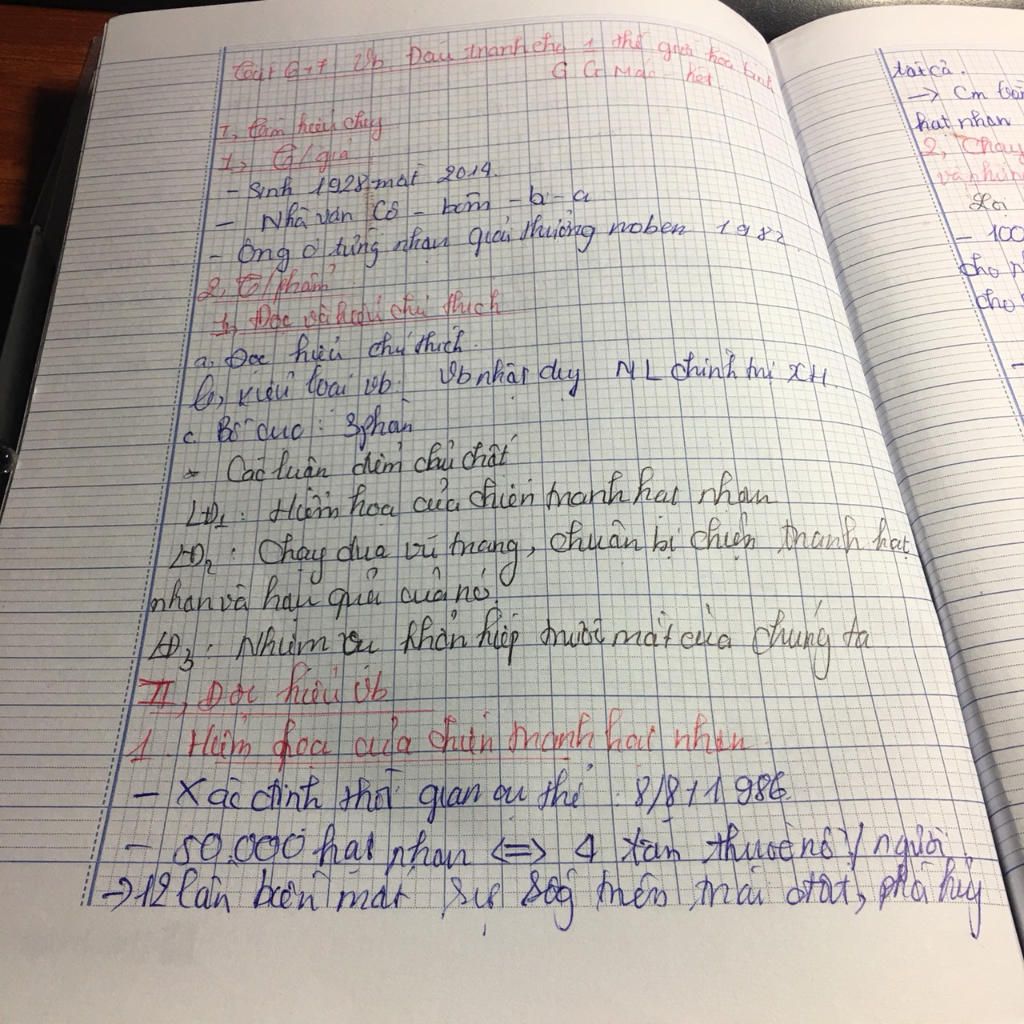 Tiết 6+7 Vb. Đấu tranh cho 1 thế giới hòa bình
G G Mác - két
I, Tìm hiểu chug
1, T/giả
- Sinh 1928 mất 2014.
- Nhà văn Cô - lôm - b - a
- Ông từng nhận giải thưởng noben 1982
2, T/phẩm
1, Đọc và hiểu chú thích
a, Đọc hiểu chú thích.
b, Kiểu loại vb: Vb nhật dụg NL chính trị XH
c. Bố cục: 3 phần
* Các luận điểm chủ chốt
LĐ1: Hiểm họa của chiến tranh hạt nhân
LĐ2: Chạy đua vũ trang, chuẩn bị chiến tranh hạt
nhân và hậu quả của nó.
LĐ3: Nhiệm vụ khẩn thiếp trước mắt của chúng ta
II, Đọc hiểu vb
1. Hiểm họa của chiến tranh hạt nhân
- Xác định thời gian cụ thể: 8/8/1986.
- 50.000 hạt nhân <=> 4 tấn thuốc nổ/người
-> 12 lần biến mất sự sốg trên trái đất, phá hủy
tất cả.
->
hạt nhân
2, Chạy
- 100
cho
cho